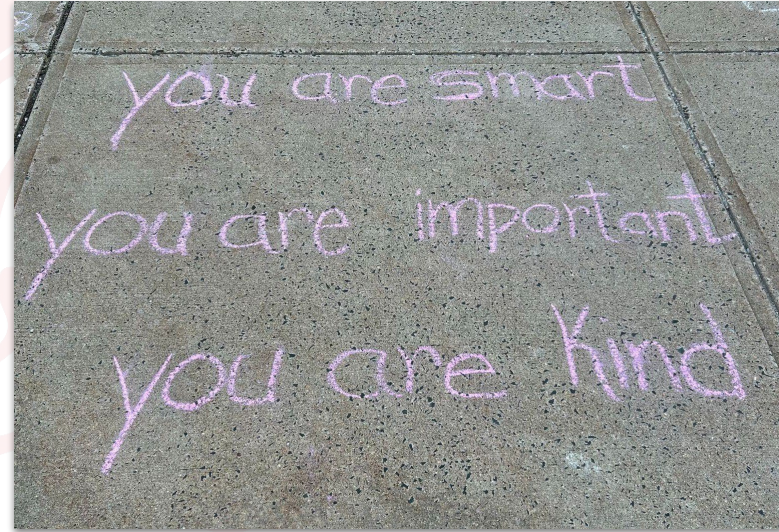 you are smart
you are important
you are kind